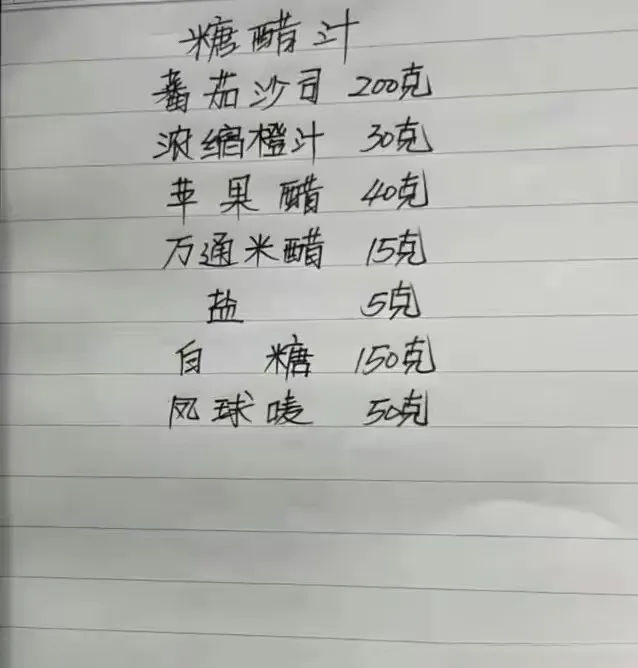 糖醋汁
番茄沙司 200克
浓缩橙汁 30克
苹果醋 40克
万通米醋 15克
盐 5克
白糖 150克
凤球唛 50克